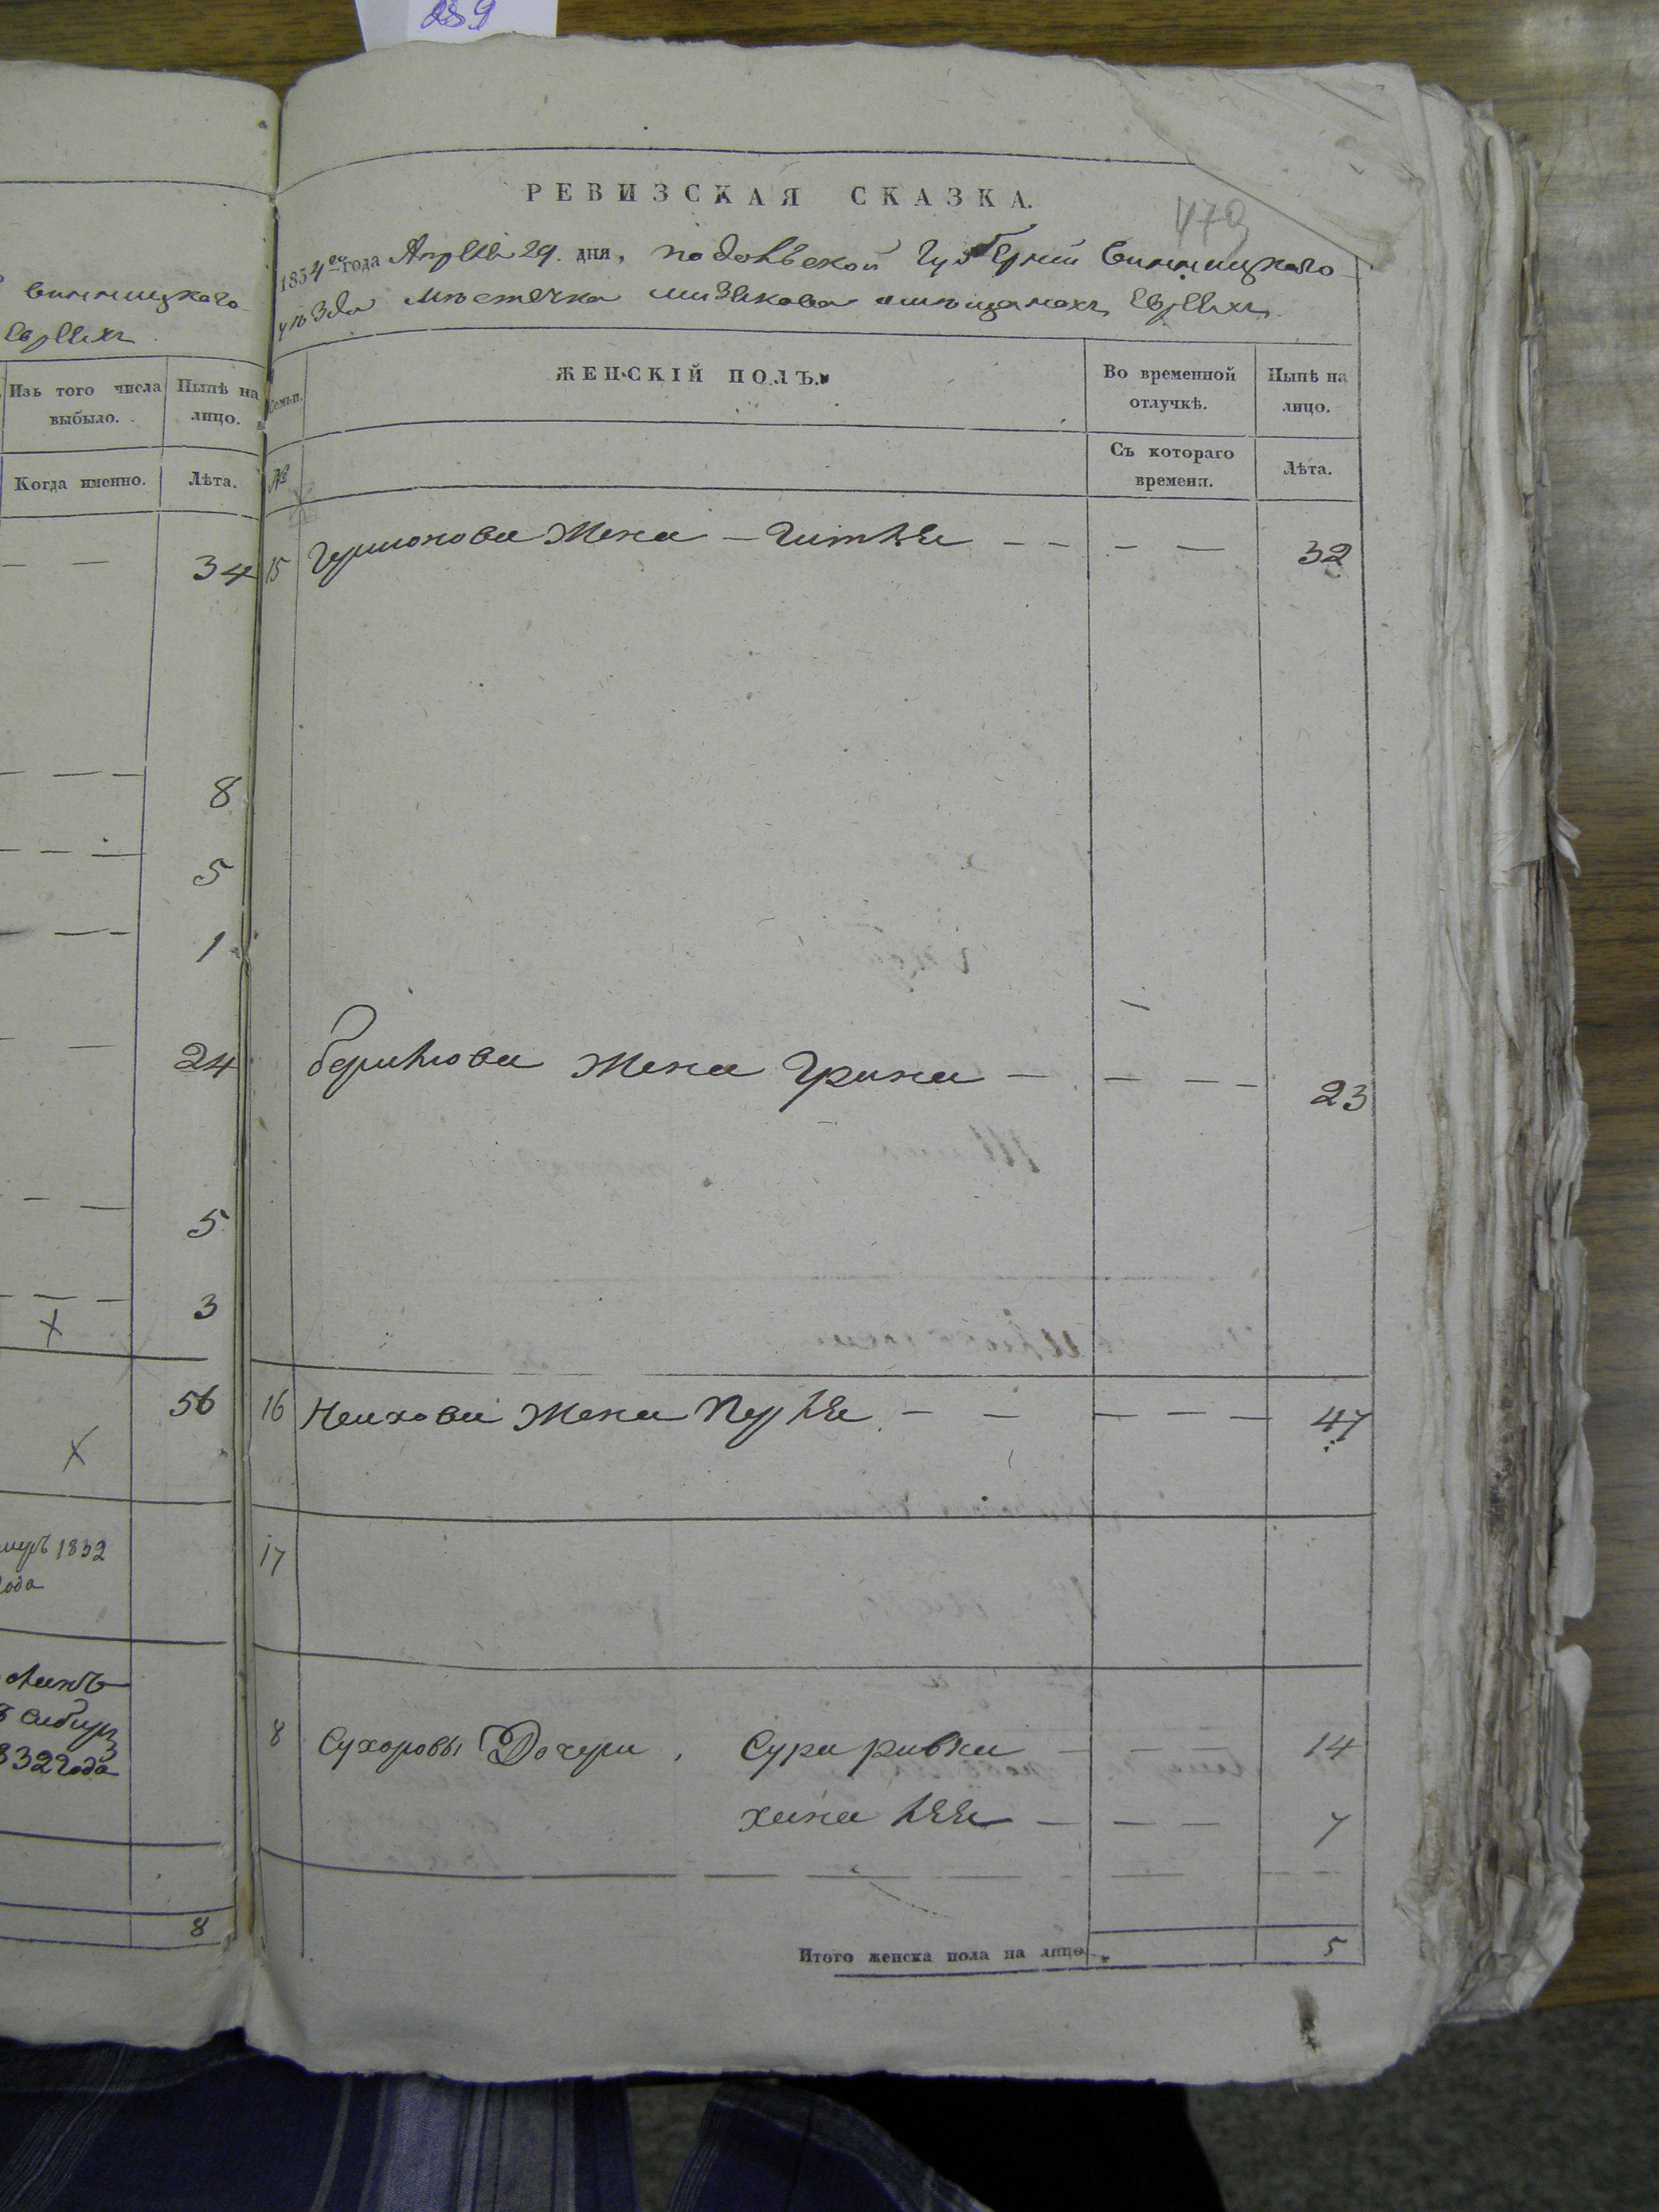 289
винницкаго
Евреихъ
Изъ того числа выбыло.
Нынѣ на лицо.
Когда именно.
Лѣта.
34
8
5
1
24
5
3
56
1832
года
Сибирь
832 года
8
РЕВИЗСКАЯ СКАЗКА.
1854го года Апреля 29. дня, подольской Губернии винницкаго
уѣзда мѣстечка мизякова омѣщанахъ Евреихъ.
Семьи.
ЖЕНСКІЙ ПОЛЪ.
Во временной отлучкѣ.
Нынѣ на лицо.
№
Съ котораго времени.
Лѣта.
15 Гершонова Жена – Гитля – – – – 32
Жена Грина – – – – 23
16 Жена Перля – – – – – 47
17
8 Сухоровы Дочери, Сура ривка – – – 14
хана лея – – – 7
Итого женска пола на лицо 5